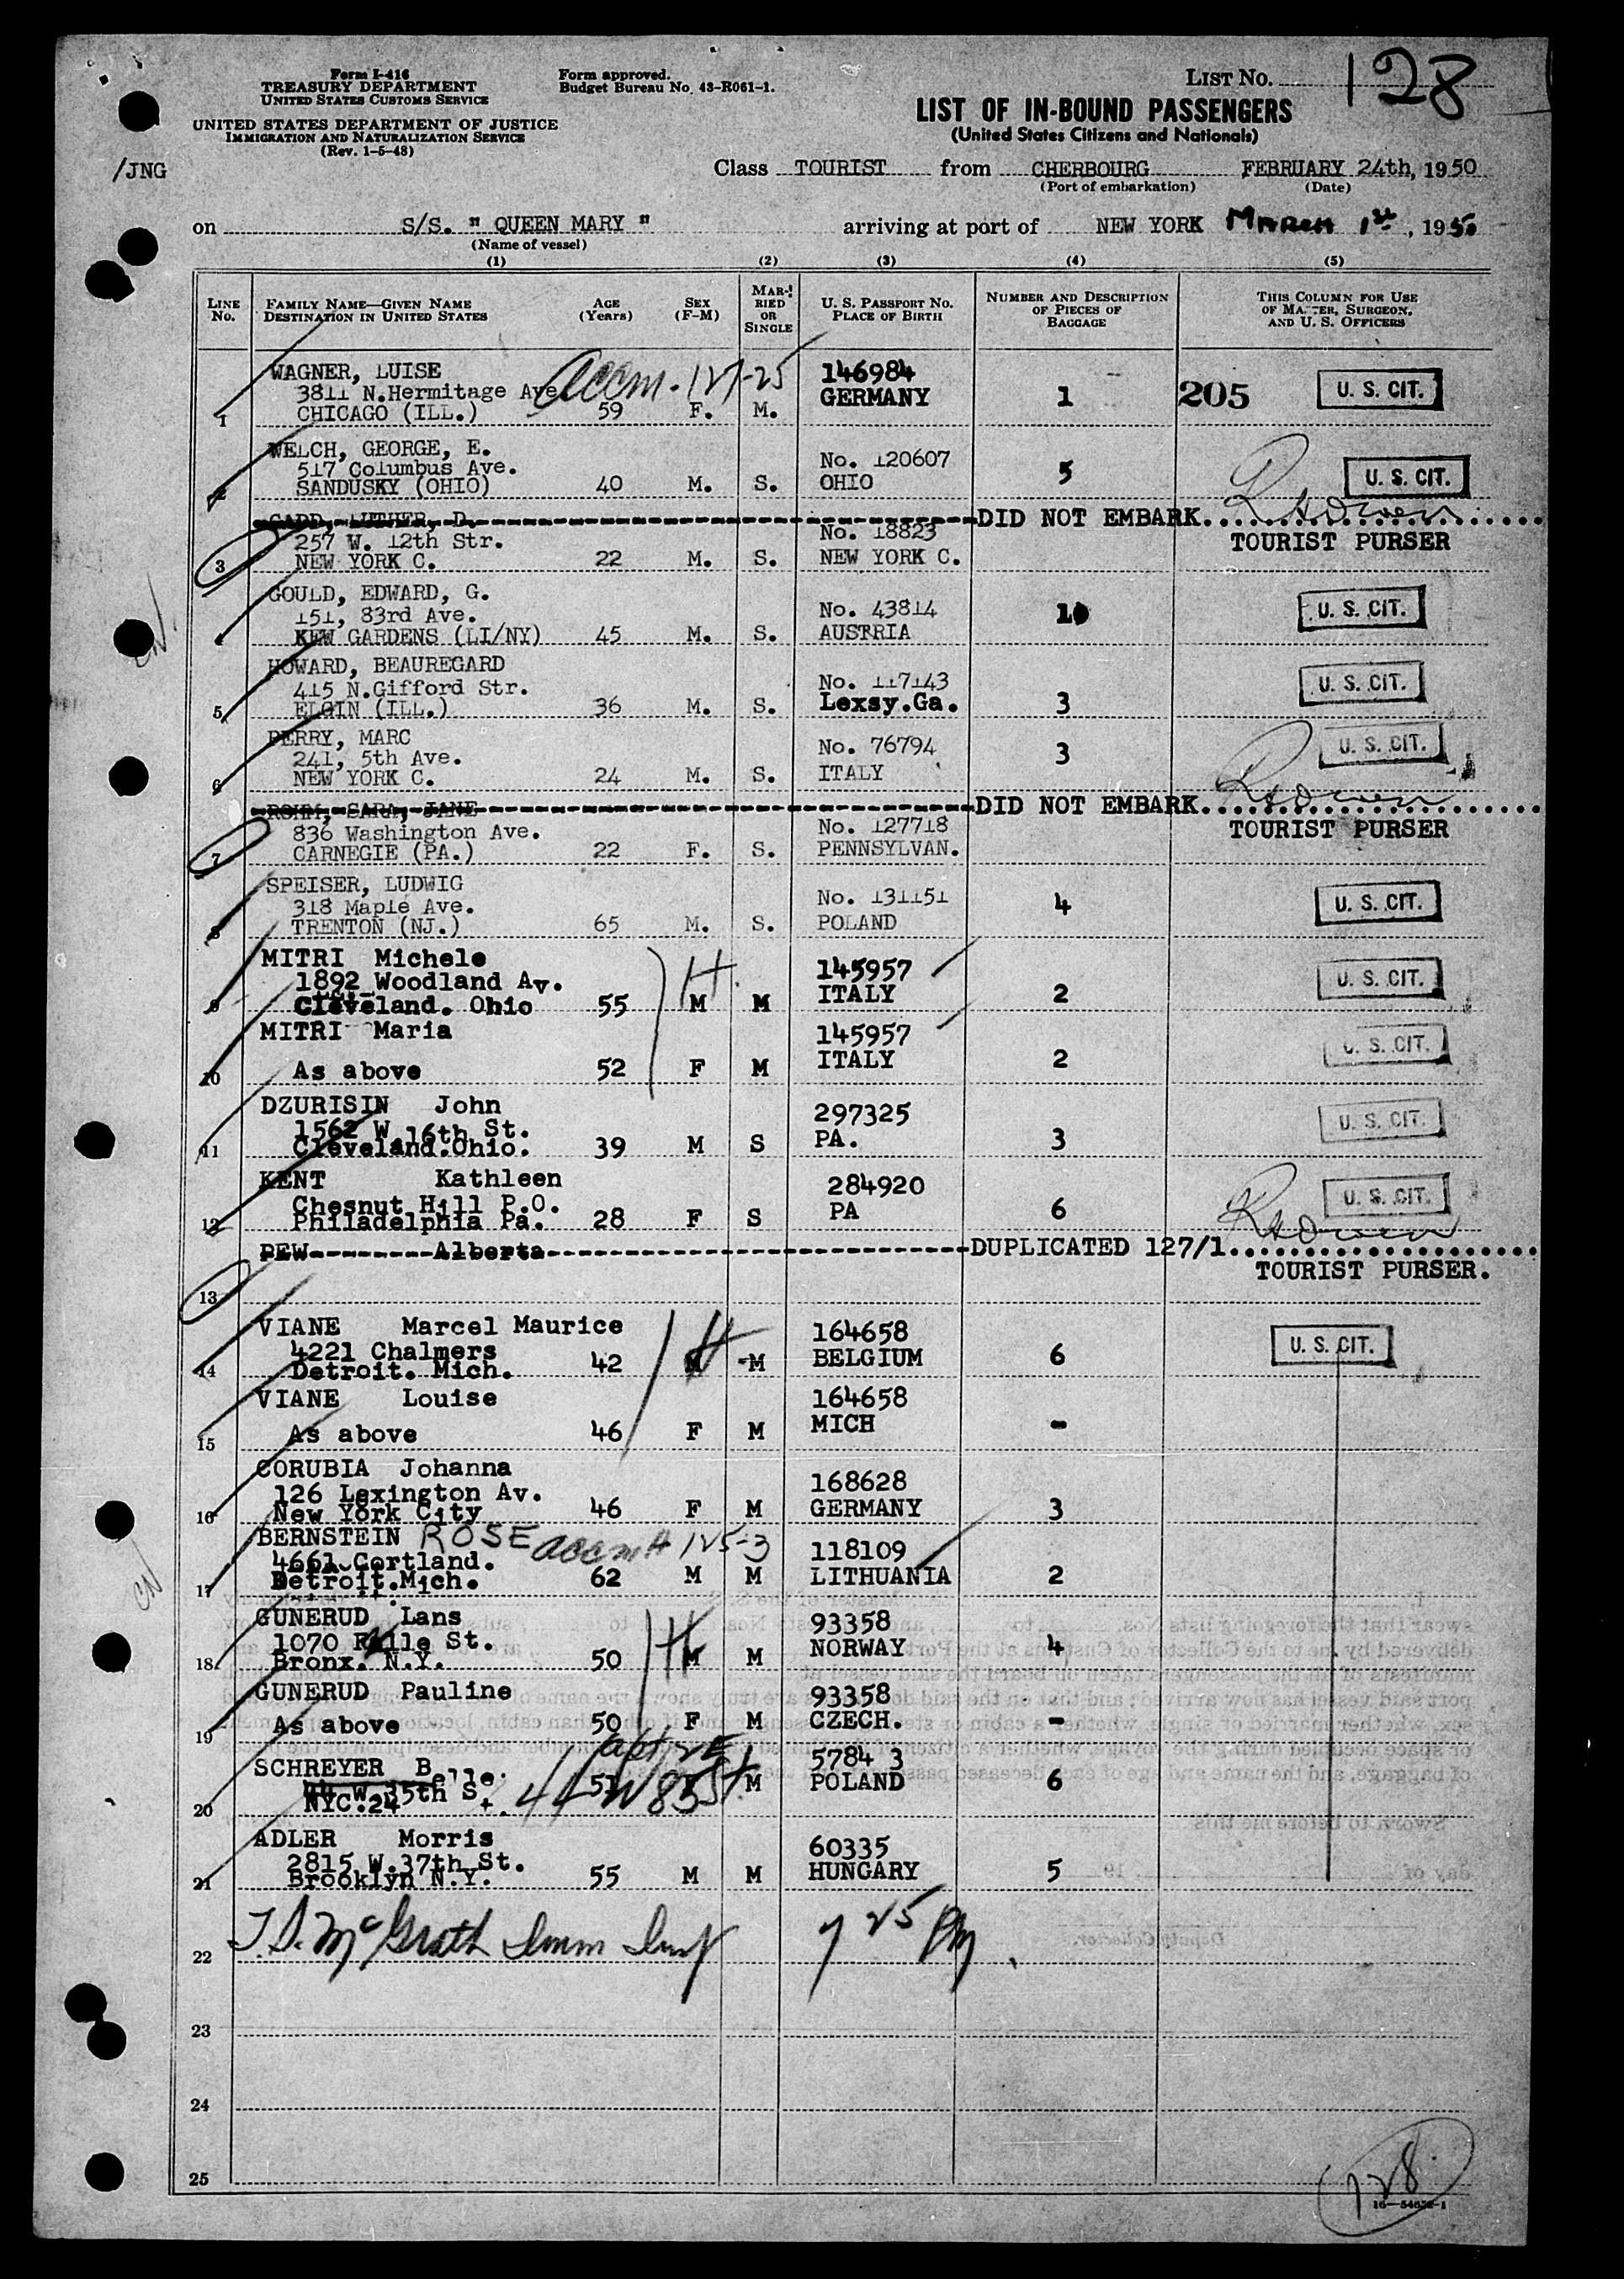 Form I-416
TREASURY DEPARTMENT
UNITED STATES CUSTOMS SERVICE
UNITED STATES DEPARTMENT OF JUSTICE
IMMIGRATION AND NATURALIZATION SERVICE
(Rev. 1-5-48)
Form approved.
Budget Bureau No. 43-R061-1.
LIST No. 128
LIST OF IN-BOUND PASSENGERS
(United States Citizens and Nationals)
/JNG
Class TOURIST from CHERBOURG FEBRUARY 24th, 1950
(Port of embarkation) (Date)
on S/S. " QUEEN MARY " arriving at port of NEW YORK MARCH 1st, 1950
(Name of vessel)
(1) (2) (3) (4) (5)
LINE No.
FAMILY NAME—GIVEN NAME
DESTINATION IN UNITED STATES
AGE (Years)
SEX (F-M)
MARRIED OR SINGLE
U. S. PASSPORT NO.
PLACE OF BIRTH
NUMBER AND DESCRIPTION OF PIECES OF BAGGAGE
THIS COLUMN FOR USE OF MASTER, SURGEON, AND U. S. OFFICERS
WAGNER, LUISE accm. 127-25 146984
3811 N.Hermitage Ave GERMANY 1 205 U. S. CIT.
1 CHICAGO (ILL.) 59 F. M.
WELCH, GEORGE, E.
517 Columbus Ave. No. 120607 5 U. S. CIT.
2 SANDUSKY (OHIO) 40 M. S. OHIO
GADD, LUTHER, D. DID NOT EMBARK
257 W. 12th Str. No. 18823 TOURIST PURSER
3 NEW YORK C. 22 M. S. NEW YORK C.
GOULD, EDWARD, G.
151, 83rd Ave. No. 43814 U. S. CIT.
4 KEW GARDENS (LI/NY) 45 M. S. AUSTRIA
HOWARD, BEAUREGARD
415 N.Gifford Str. No. 117143 U. S. CIT.
5 ELGIN (ILL.) 36 M. S. Lexsy.Ga. 3
PERRY, MARC
241, 5th Ave. No. 76794 3 U. S. CIT.
6 NEW YORK C. 24 M. S. ITALY
ROHM, SARA, JANE DID NOT EMBARK
836 Washington Ave. No. 127718 TOURIST PURSER
7 CARNEGIE (PA.) 22 F. S. PENNSYLVAN.
SPEISER, LUDWIG
318 Maple Ave. No. 131151 4 U. S. CIT.
8 TRENTON (NJ.) 65 M. S. POLAND
MITRI Michele H.
1892 Woodland Av. 145957 U. S. CIT.
9 Cleveland. Ohio 55 M M ITALY 2
MITRI Maria 145957 U. S. CIT.
10 As above 52 F M ITALY 2
DZURISIN John 297325
1562 W.16th St. U. S. CIT.
11 Cleveland.Ohio. 39 M S PA. 3
KENT Kathleen 284920 U. S. CIT.
Chesnut Hill P.O.
12 Philadelphia Pa. 28 F S PA 6
PEW Alberta DUPLICATED 127/1
13 TOURIST PURSER.
VIANE Marcel Maurice H 164658 U. S. CIT.
4221 Chalmers
14 Detroit. Mich. 42 M M BELGIUM 6
VIANE Louise 164658
15 As above 46 F M MICH -
CORUBIA Johanna 168628
126 Lexington Av.
16 New York City 46 F M GERMANY 3
BERNSTEIN ROSE accm H 125-3 118109
4661 Cortland.
17 Detroit.Mich. 62 M M LITHUANIA 2
GUNERUD Lans H 93358
1070 St.
18 Bronx. N.Y. 50 M M NORWAY 4
GUNERUD Pauline 93358
19 As above 50 F M CZECH. -
SCHREYER Belle. 5784 3
44 W 85 St.
20 NYC.24 51 M POLAND 6
ADLER Morris 60335
2815 W.37th St.
21 Brooklyn N.Y. 55 M M HUNGARY 5
22 T.S. McGrath Imm Insp 7 25 PM.
23
24
25
128